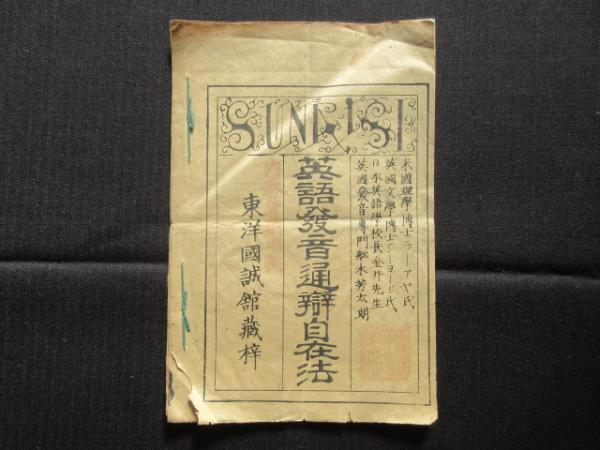 米國理學博士ラーアヤ氏
英國文學博士ジーヨージ氏
日本英語學校長金井先生
英國發音專門舩木芳太朗
英語發音通辯自在法
東洋國誠館藏梓